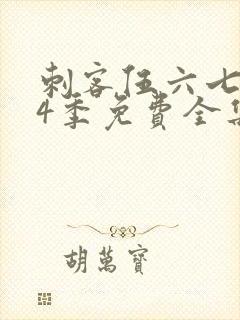 刺客伍六七
4季免费全集
胡萬寳